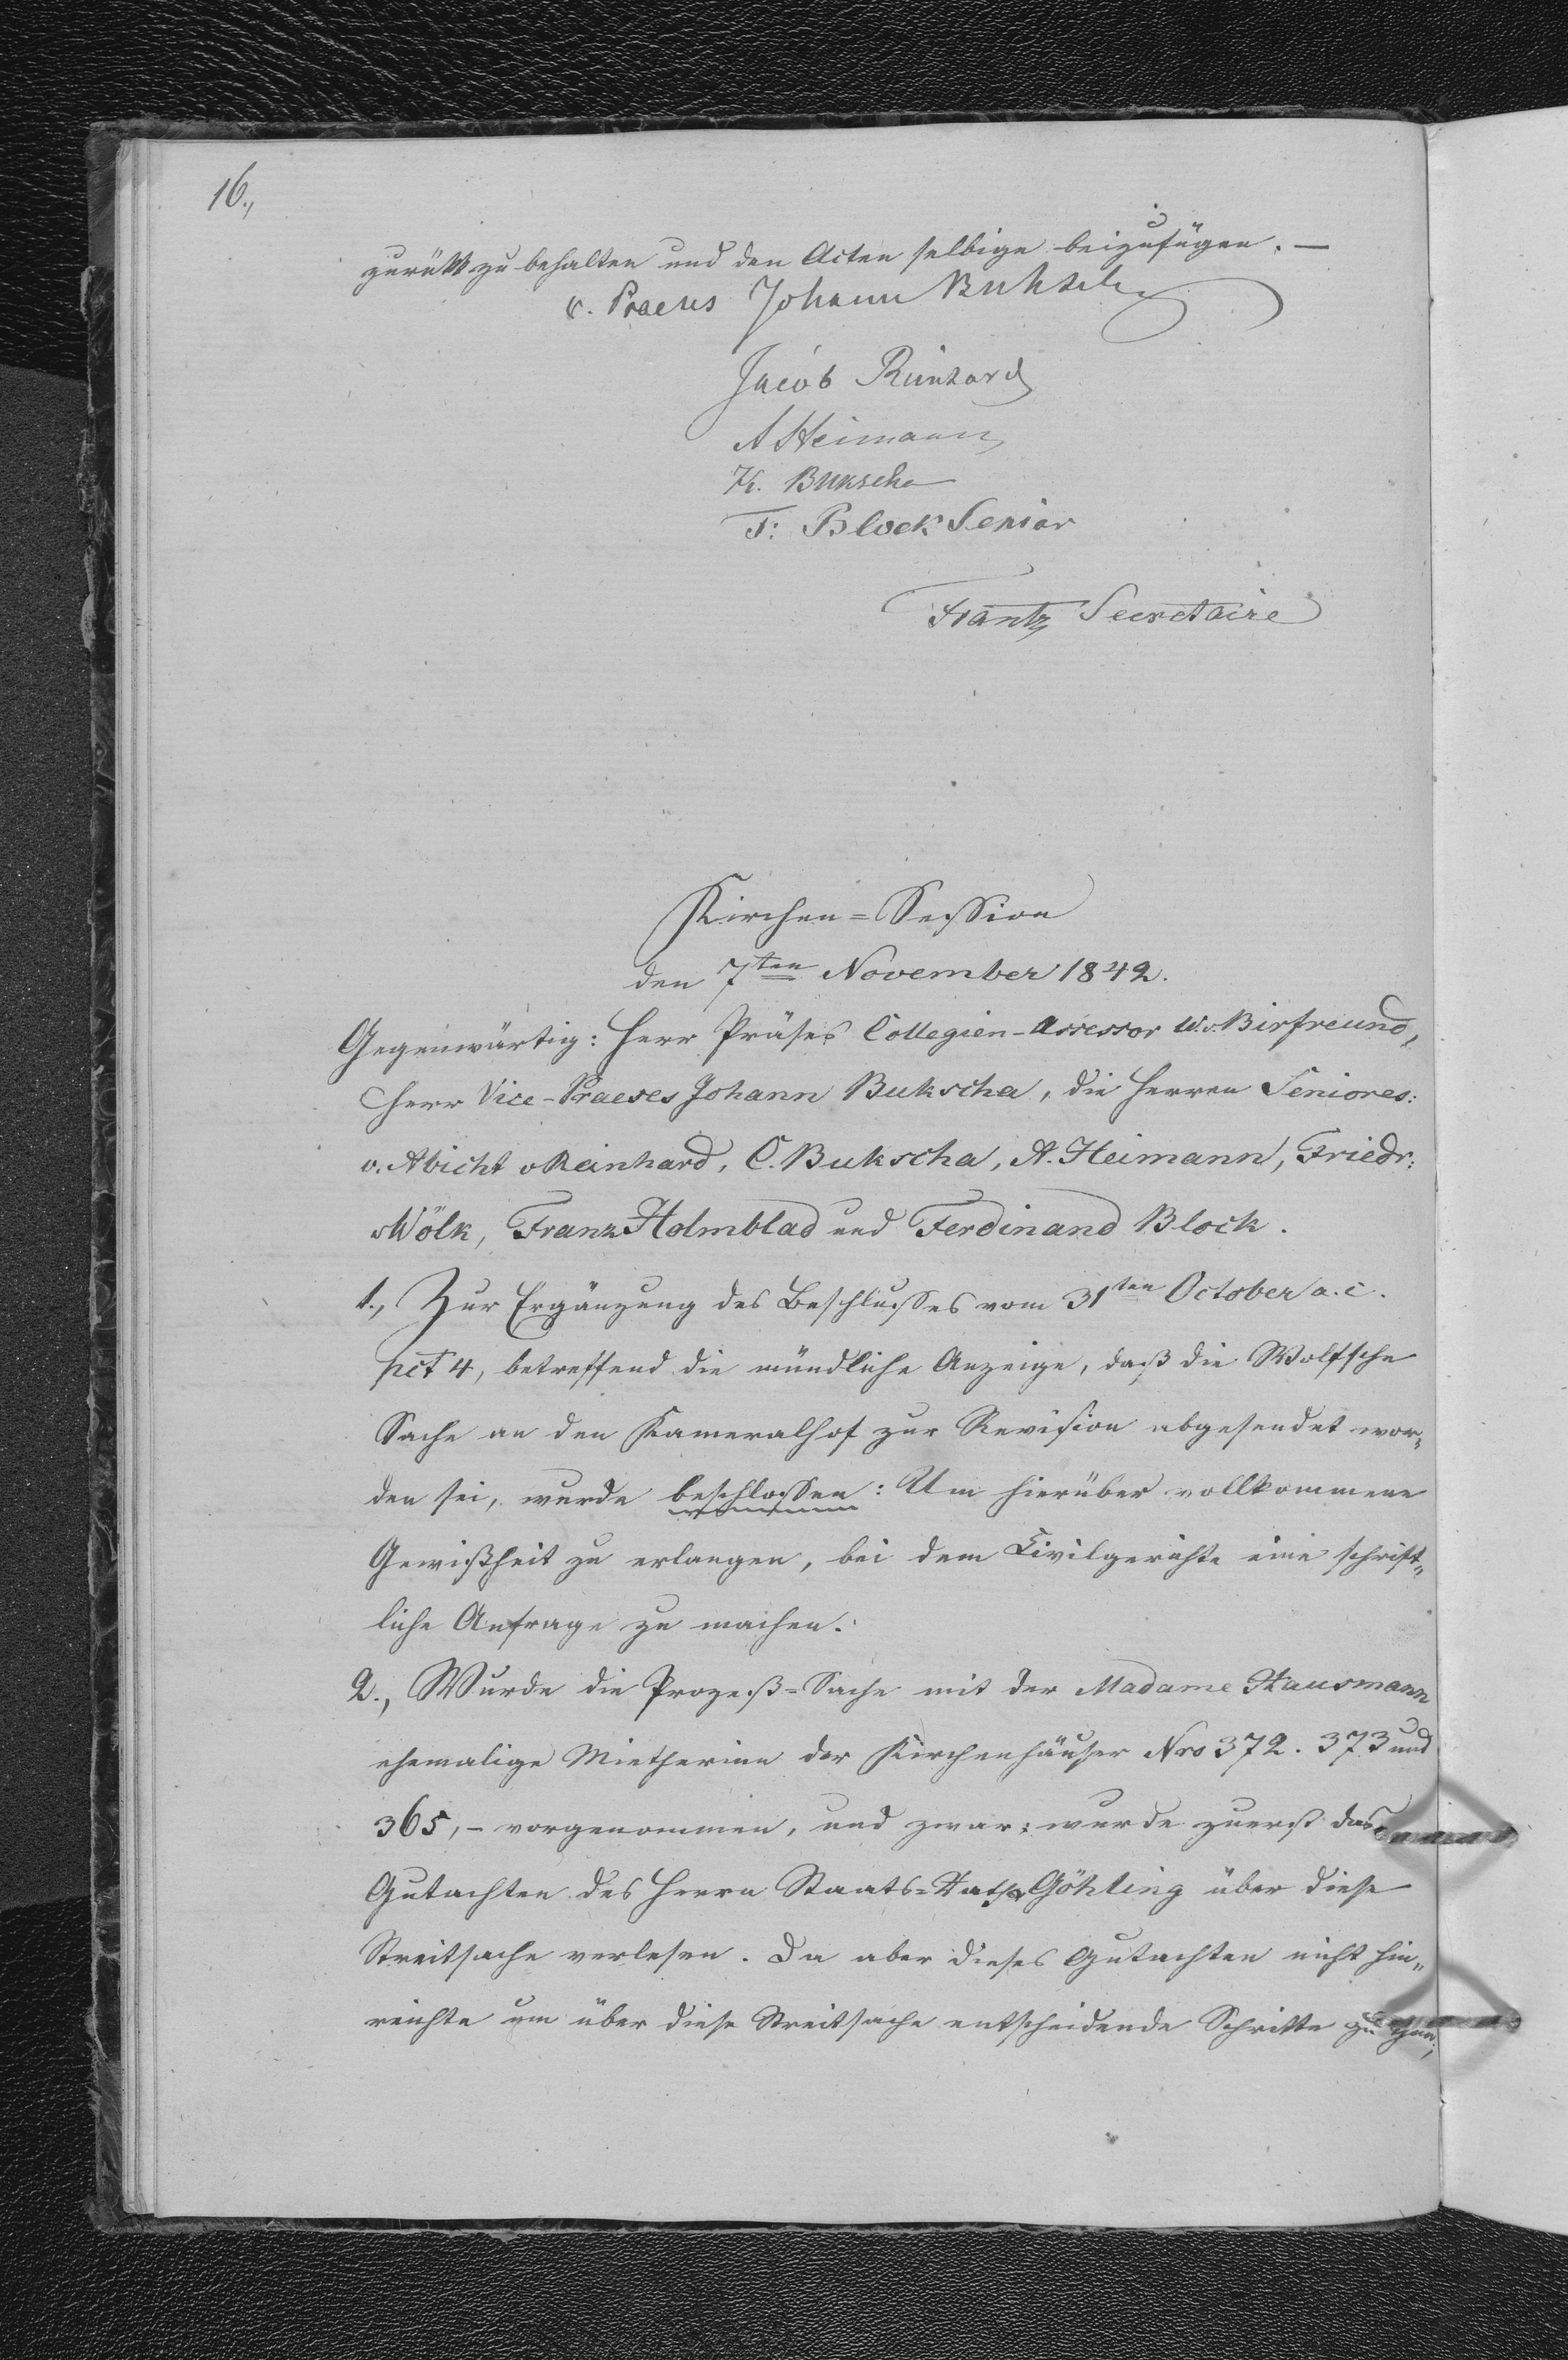 16.,
zurük zu behalten und den Acten selbige beizufügen. —
v. Praeses Johann Buksch
Jacob Reinhard
A Heimann
K. Bukscha
F: Block Senior
Frantz Secretaire
Kirchen=Session
den 7ten November 1842.
Gegenwärtig: Herr Präses Collegien-Assessor W. v. Birfreund,
Herr Vice-Praeses Johann Bukscha, die Herren Seniores:
v. Abicht Reinhard, C. Bukscha, A. Heimann, Friedr:
Wölk, Franz Holmblad und Ferdinand Block.
1., Zur Ergänzung des Beschlusses vom 31ten October a. c.
pct 4, betreffend die mündliche Anzeige, daß die Wolfsche
Sache an den Kameralhof zur Revision abgesendet wor„
den sei, wurde beschlossen: Um hierüber vollkommene
Gewißheit zu erlangen, bei dem Civilgerichte eine schrift„
liche Anfrage zu machen.
2., Wurde die Prozeß=Sache mit der Madame Hausmann
ehemalige Mietherinn der Kirchenhäuser Nro 372. 373 und
365,- vorgenommen, und zwar: wurde zuerst das
Gutachten des Herrn Staats=Raths Göhling über diese
Streitsache verlesen. Da aber dieses Gutachten nicht hin„
reichte um über diese Streitsache entscheidende Schritte zu thun,